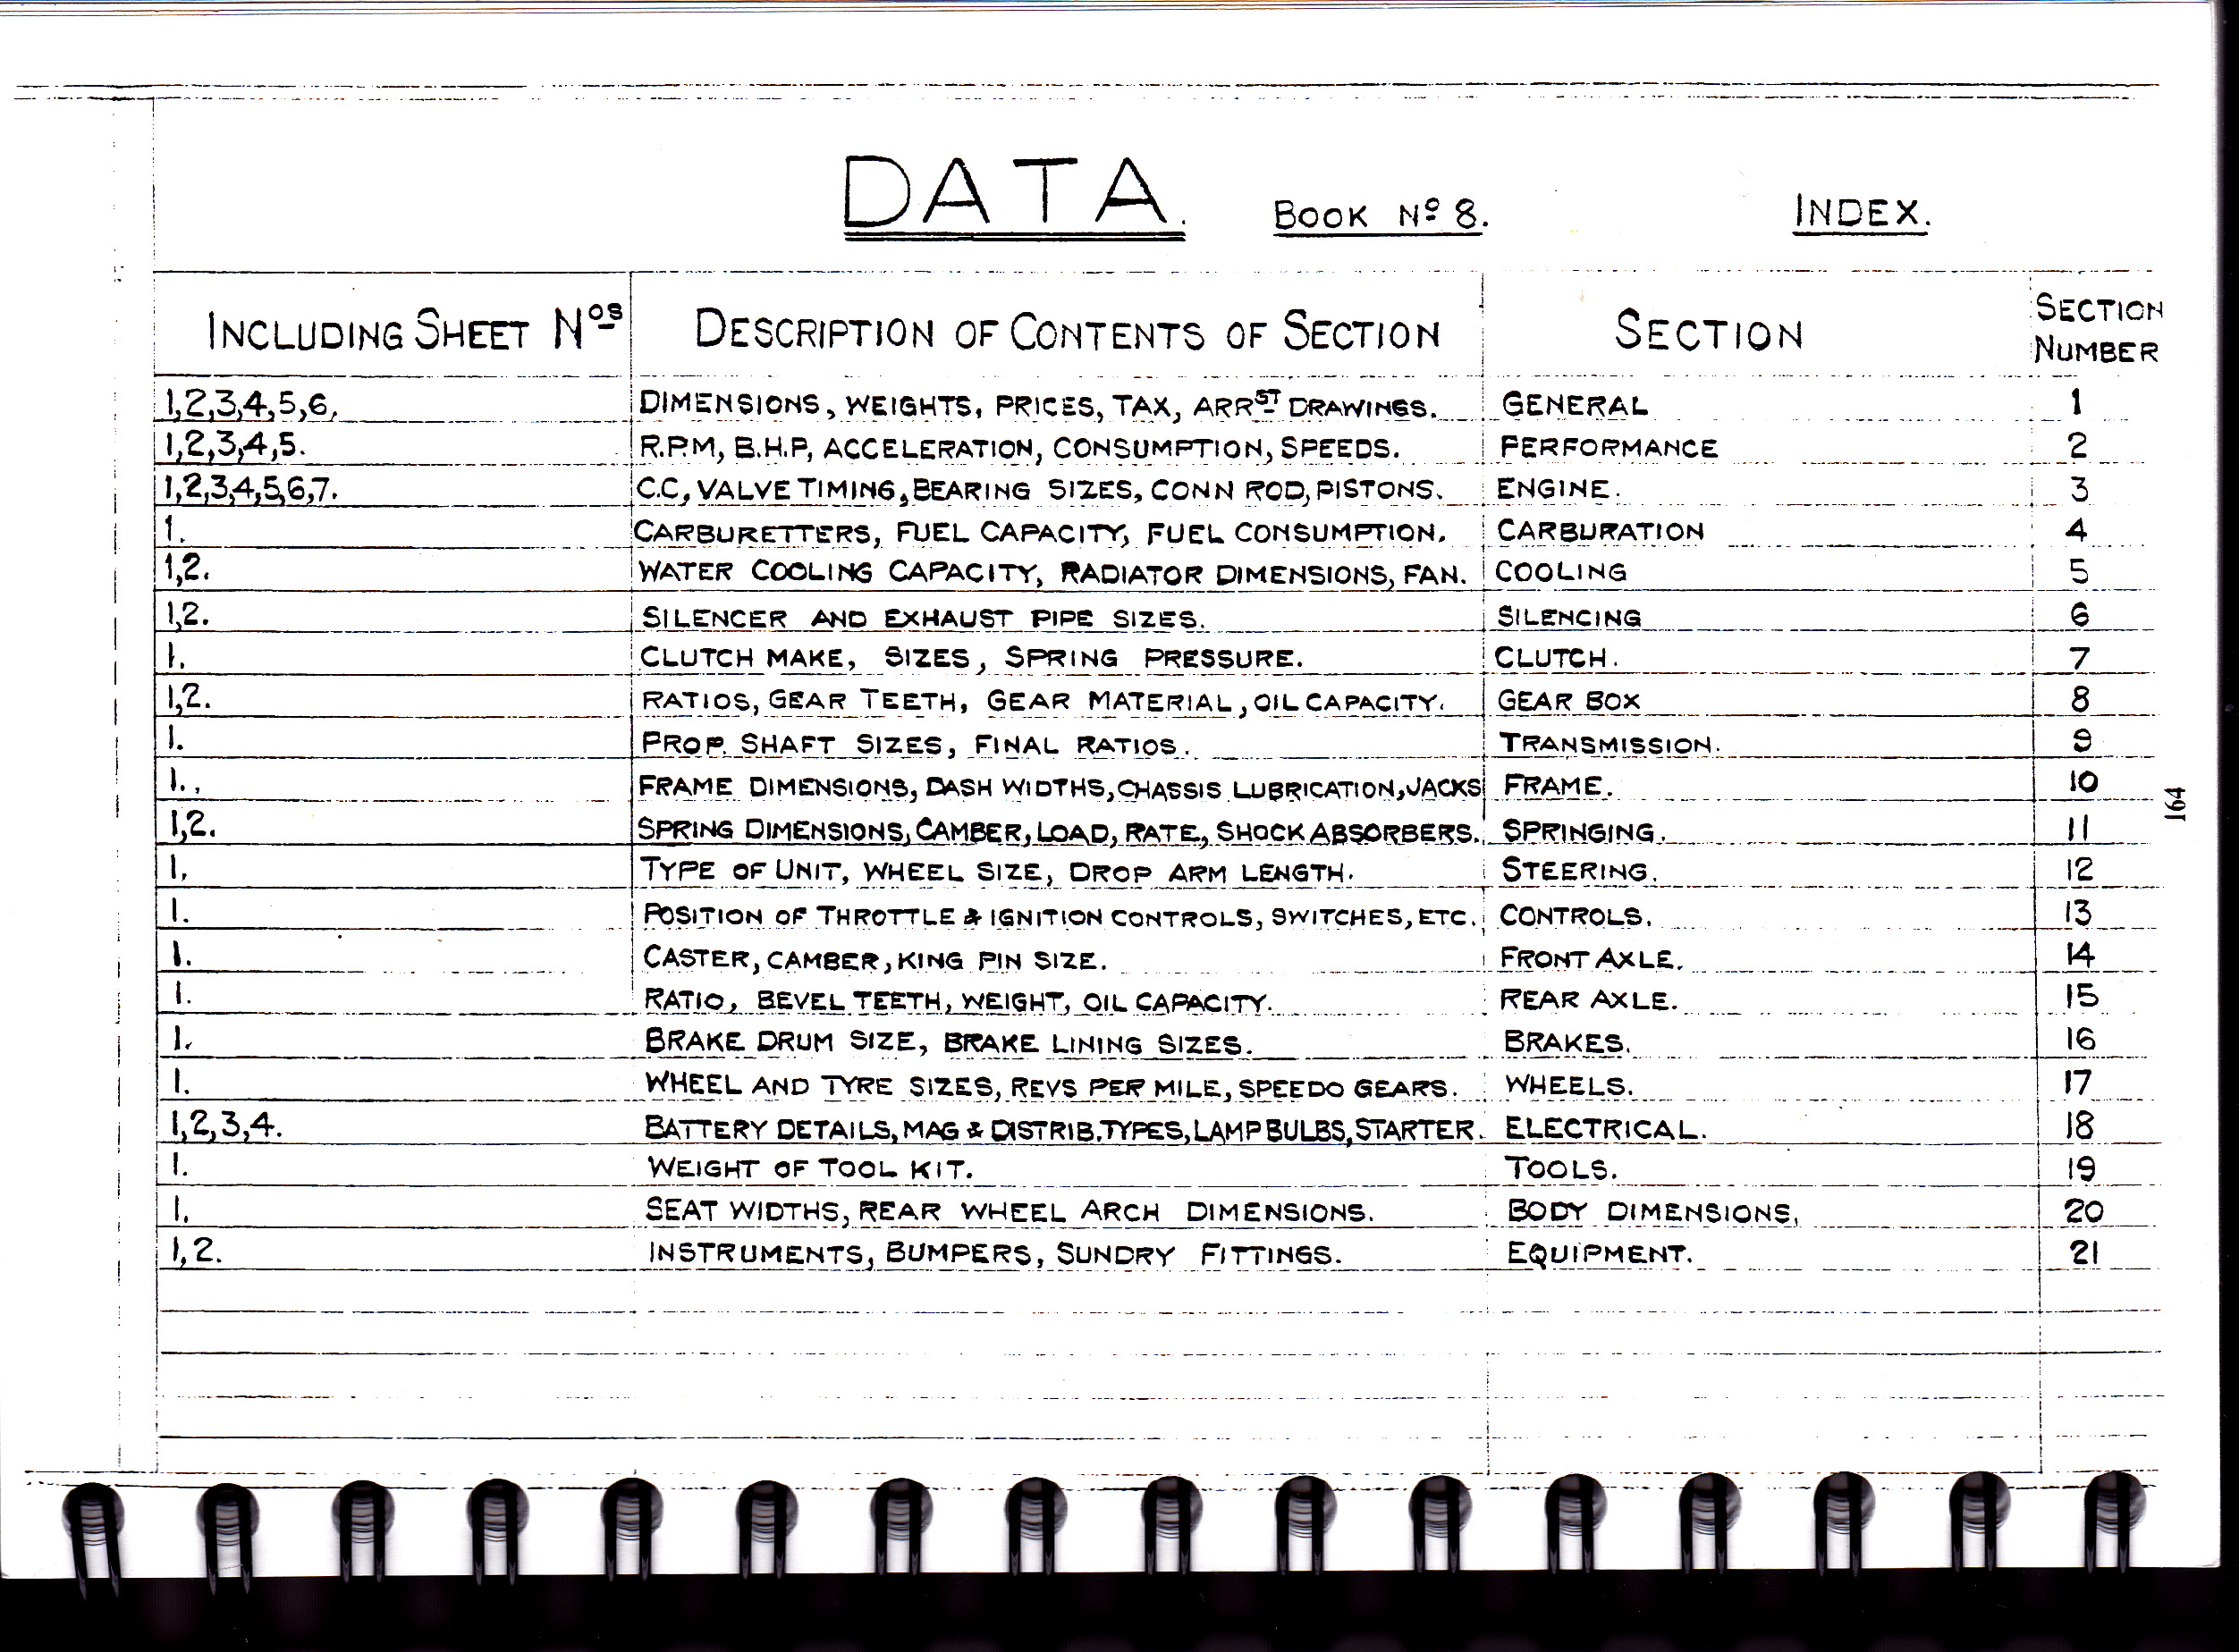 DATA. BOOK Nº 8. INDEX.
INCLUDING SHEET Nºˢ DESCRIPTION OF CONTENTS OF SECTION SECTION SECTION NUMBER
1,2,3,4,5,6, DIMENSIONS, WEIGHTS, PRICES, TAX, ARRST DRAWINGS. GENERAL 1
1,2,3,4,5. R.P.M, B.H.P, ACCELERATION, CONSUMPTION, SPEEDS. PERFORMANCE 2
1,2,3,4,5,6,7. C.C, VALVE TIMING, BEARING SIZES, CONN ROD, PISTONS. ENGINE. 3
1. CARBURETTERS, FUEL CAPACITY, FUEL CONSUMPTION. CARBURATION 4
1,2. WATER COOLING CAPACITY, RADIATOR DIMENSIONS, FAN. COOLING 5
1,2. SILENCER AND EXHAUST PIPE SIZES. SILENCING 6
1. CLUTCH MAKE, SIZES, SPRING PRESSURE. CLUTCH. 7
1,2. RATIOS, GEAR TEETH, GEAR MATERIAL, OIL CAPACITY. GEAR BOX 8
1. PROP. SHAFT SIZES, FINAL RATIOS. TRANSMISSION. 9
1., FRAME DIMENSIONS, DASH WIDTHS, CHASSIS LUBRICATION, JACKS FRAME. 10
1,2. SPRING DIMENSIONS, CAMBER, LOAD, RATE, SHOCK ABSORBERS. SPRINGING. 11
1, TYPE OF UNIT, WHEEL SIZE, DROP ARM LENGTH. STEERING. 12
1. POSITION OF THROTTLE & IGNITION CONTROLS, SWITCHES, ETC. CONTROLS. 13
1. CASTER, CAMBER, KING PIN SIZE. FRONT AXLE. 14
1. RATIO, BEVEL TEETH, WEIGHT, OIL CAPACITY. REAR AXLE. 15
1. BRAKE DRUM SIZE, BRAKE LINING SIZES. BRAKES. 16
1. WHEEL AND TYRE SIZES, REVS PER MILE, SPEEDO GEARS. WHEELS. 17
1,2,3,4. BATTERY DETAILS, MAG & DISTRIB. TYPES, LAMP BULBS, STARTER. ELECTRICAL. 18
1. WEIGHT OF TOOL KIT. TOOLS. 19
1. SEAT WIDTHS, REAR WHEEL ARCH DIMENSIONS. BODY DIMENSIONS, 20
1,2. INSTRUMENTS, BUMPERS, SUNDRY FITTINGS. EQUIPMENT. 21
164